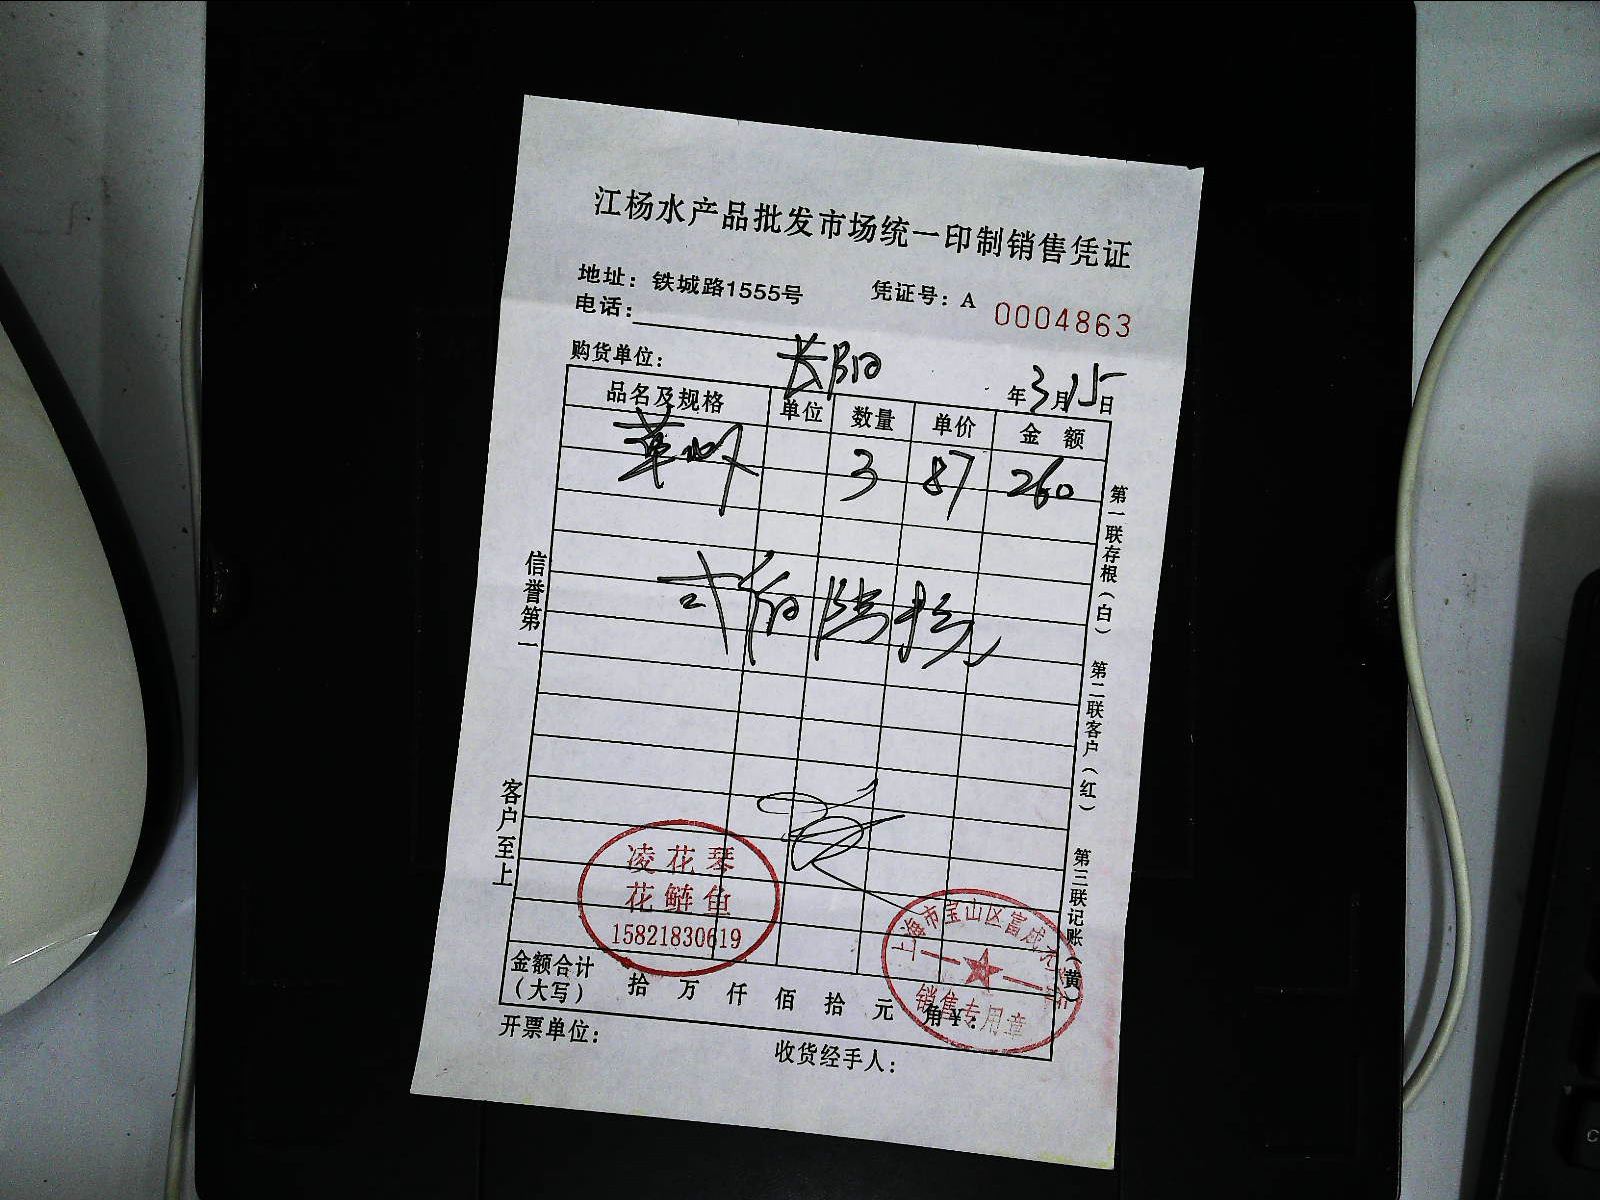 江杨水产品批发市场统一印制销售凭证
地址：铁城路1555号 凭证号：A 0004863
电话：
购货单位： 长阳 年3月15日
品名及规格 单位 数量 单价 金额
草虾 3 87 260
弍佰陆拾元
信誉第一
客户至上
第一联存根（白）
第二联客户（红）
第三联记账（黄）
凌花琴
花鲢鱼
15821830619
上海市宝山区富成
销售专用章
金额合计（大写） 拾 万 仟 佰 拾 元 角￥：
开票单位： 收货经手人：